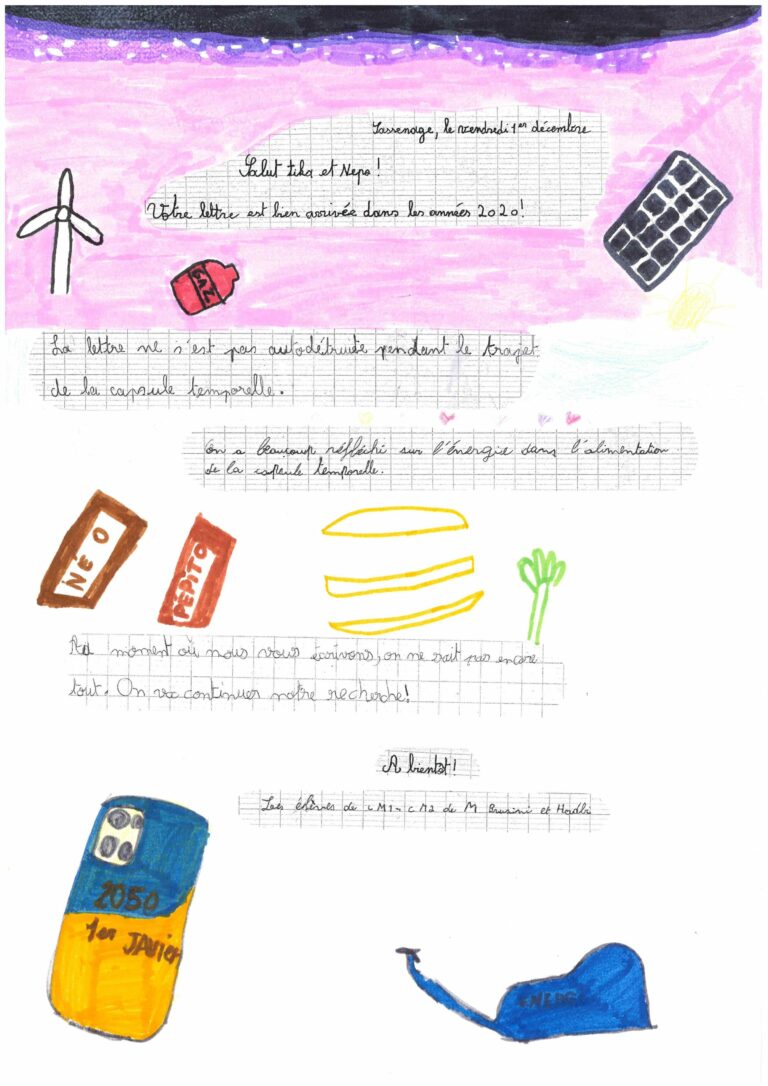 Sassenage, le vendredi 1er décembre
Salut Tika et Nepo !
Votre lettre est bien arrivée dans les années 2020!
GAZ
La lettre ne s'est pas autodétruite pendant le trajet
de la capsule temporelle.
On a beaucoup réfléchi sur l'énergie dans l'alimentation
de la capsule temporelle.
NÉO
PÉPITO
Au moment où nous vous écrivons, on ne sait pas encore
tout. On va continuer notre recherche!
A bientot!
Les élèves de CM1-CM2 de M et
2050
1er JAViER